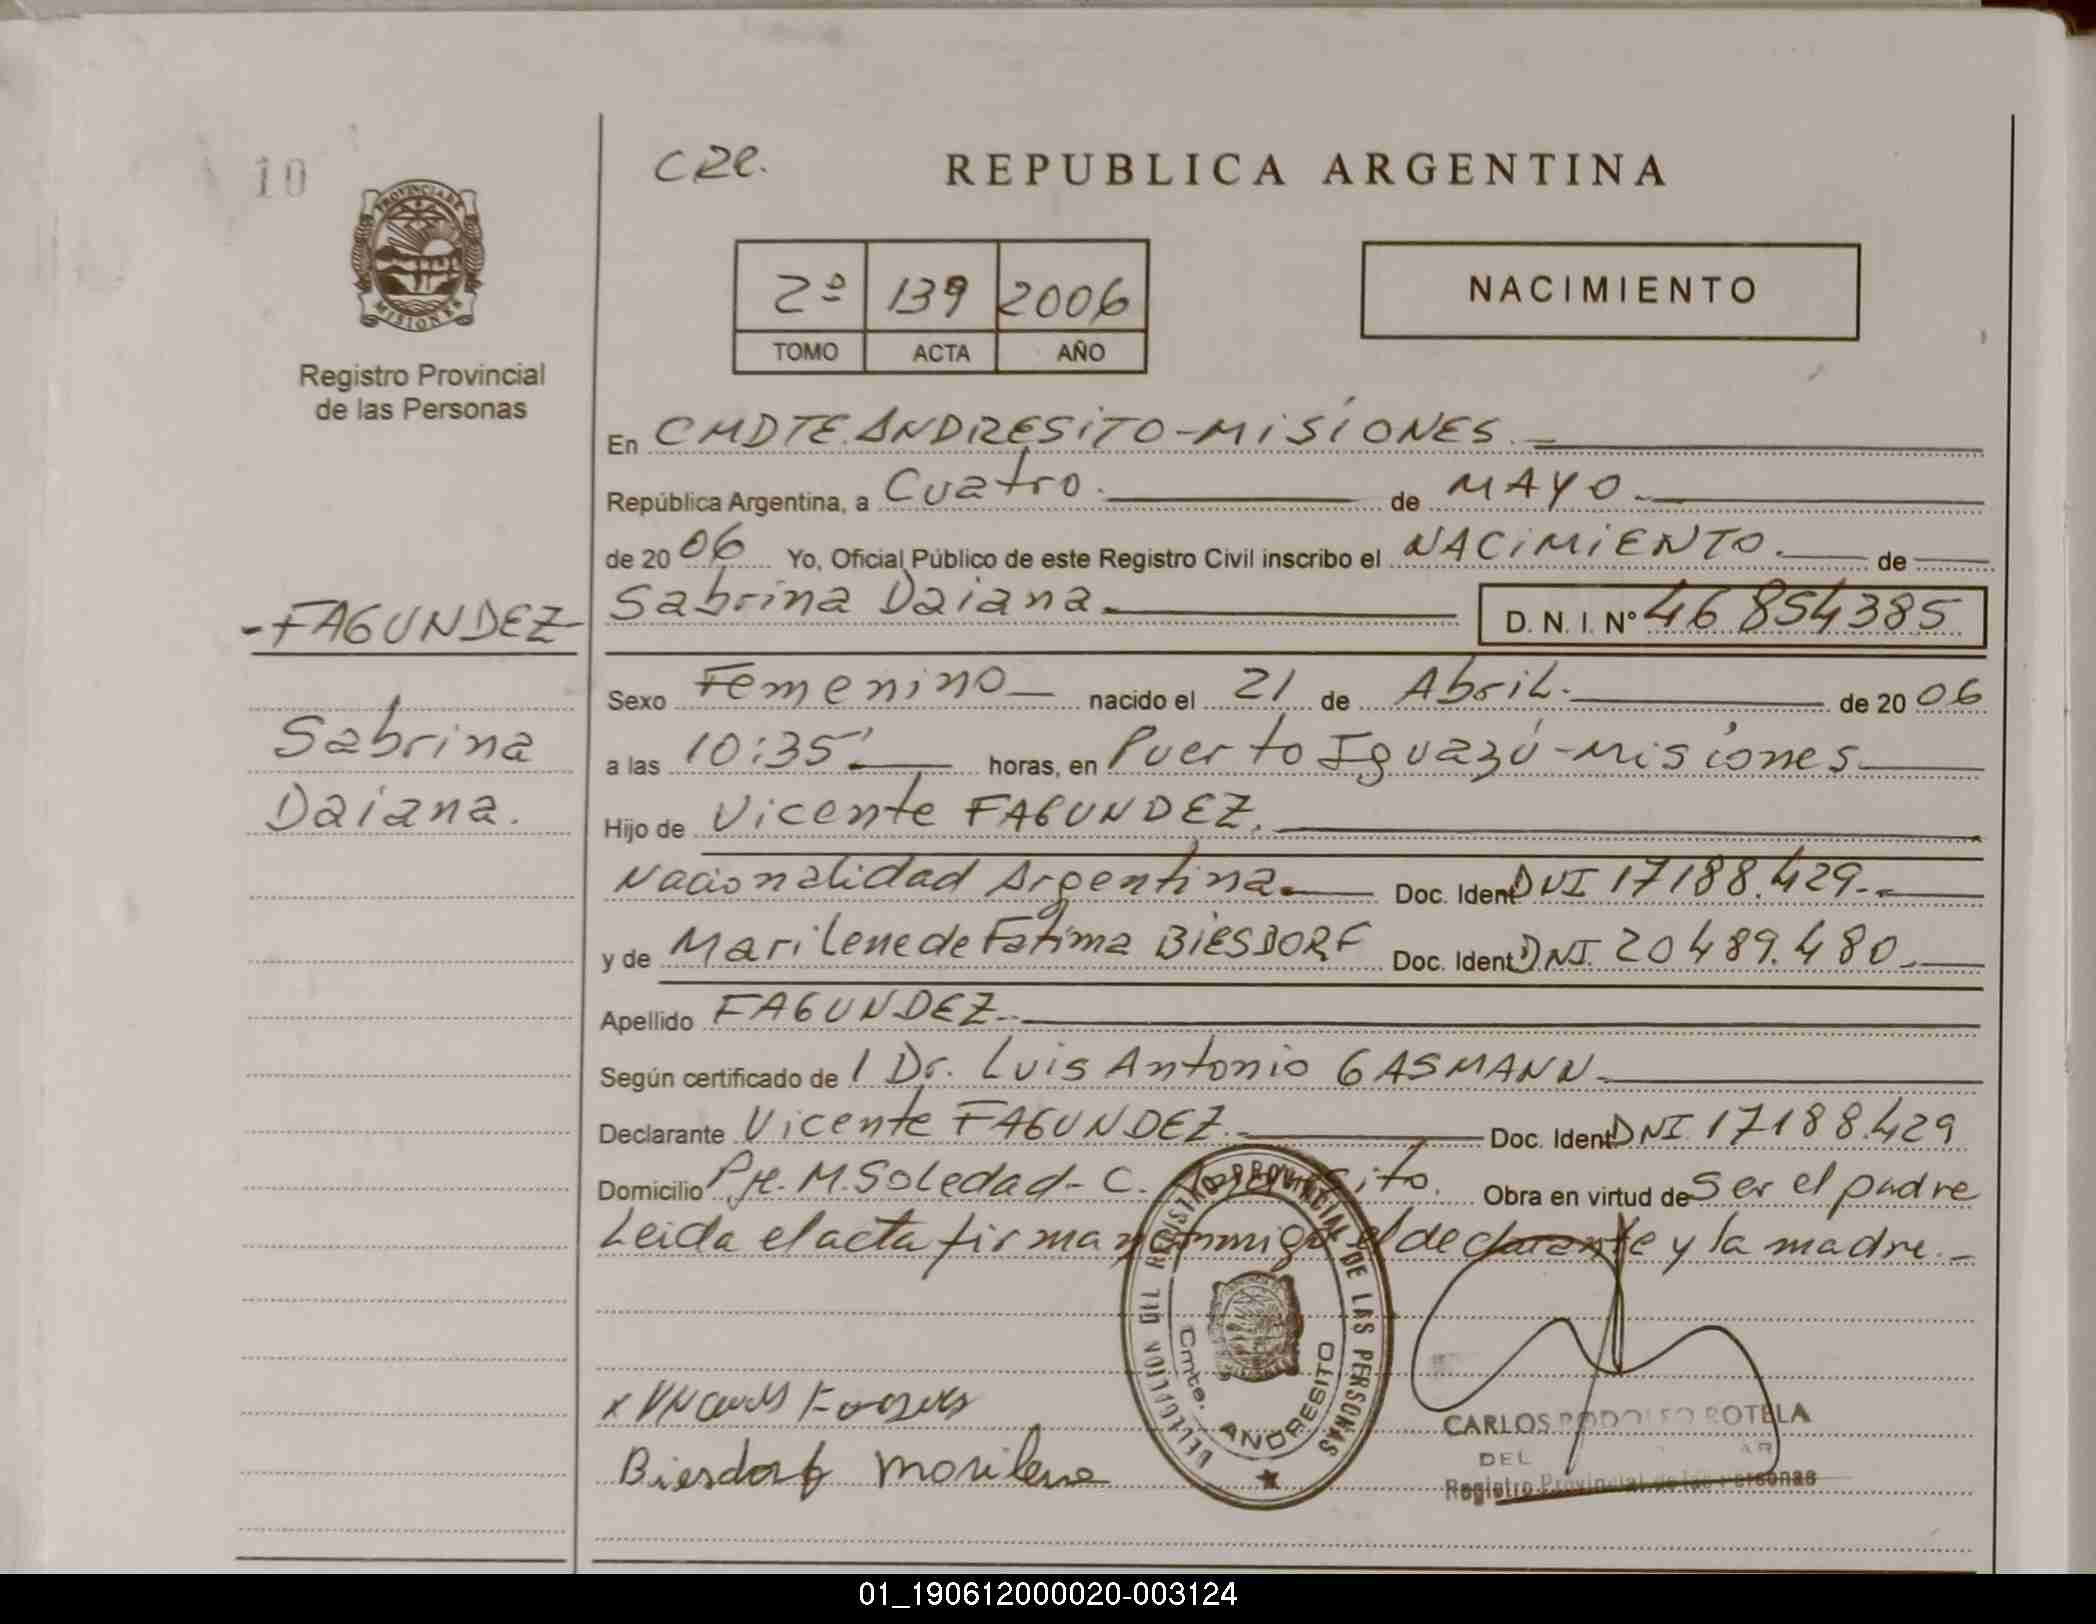 10
PROVINCIA DE
MISIONES
Registro Provincial
de las Personas
-FAGUNDEZ-
Sabrina
Daiana.
CRE.
REPUBLICA ARGENTINA
2º 139 2006
TOMO ACTA AÑO
NACIMIENTO
En CMDTE.ANDRESiTO-MiSiONES.
República Argentina, a Cuatro. de MAYO.
de 20 06 Yo, Oficial Público de este Registro Civil inscribo el NACiMiENTO. de
Sabrina Daiana. D. N. I. Nº 46 854385
Sexo Femenino nacido el 21 de Abril. de 20 06
a las 10:35'. horas, en Puerto Iguazú-Misiones
Hijo de Vicente FAGUNDEZ.
Nacionalidad Argentina. Doc. Ident DNI 17188.429.
y de Marilene de Fatima BiESDORF Doc. Ident DNI. 20489.480.
Apellido FAGUNDEZ.
Según certificado de l Dr. Luis Antonio GASMANN.
Declarante Vicente FAGUNDEZ. Doc. Ident DNI 17188.429
Domicilio M. Soledad- C. Obra en virtud de Ser el padre
Leida el acta firman conmigo el declarante y la madre.
DELEGACION DEL REGISTRO PROVINCIAL DE LAS PERSONAS
Cmte. ANDRESITO
Biesdorf Marilene
CARLOS RODOLFO ROTELA
DEL
Registro Provincial de las Personas
01_190612000020-003124